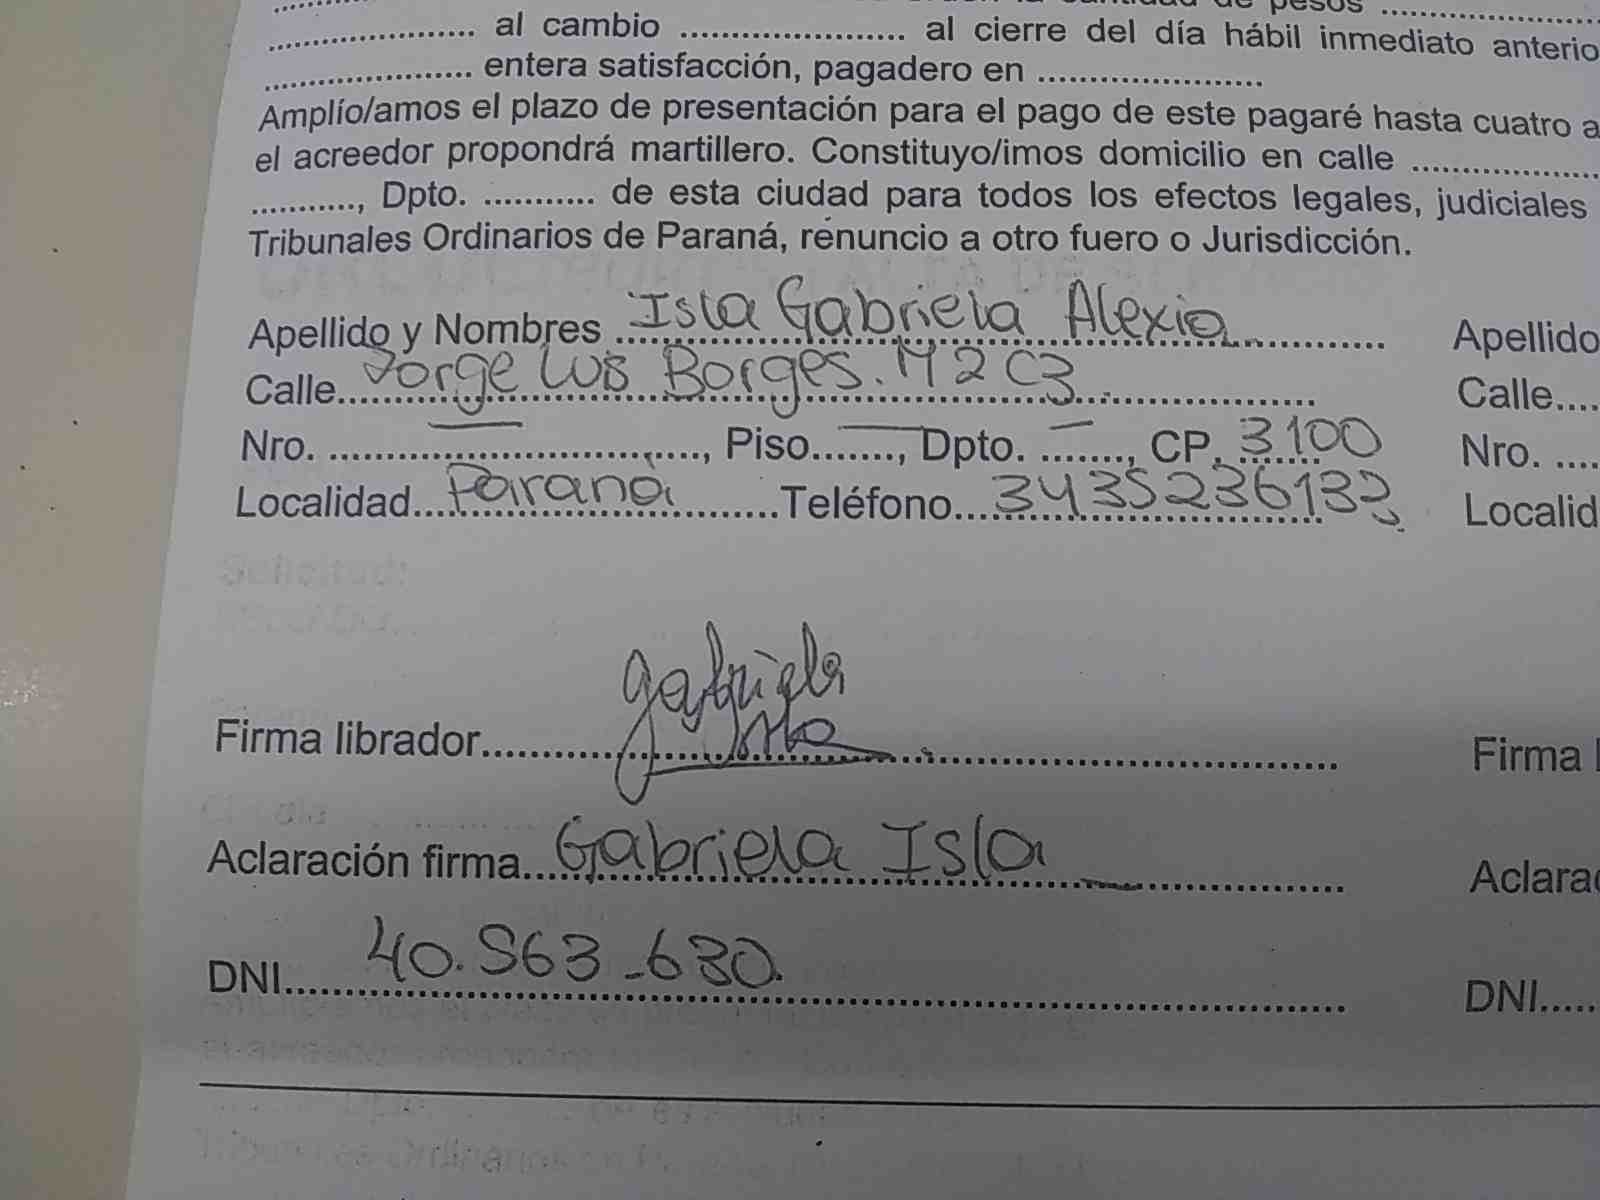 de pesos ....................
.................... al cambio .................... al cierre del día hábil inmediato anterio
.................... entera satisfacción, pagadero en ....................
Amplío/amos el plazo de presentación para el pago de este pagaré hasta cuatro a
el acreedor propondrá martillero. Constituyo/imos domicilio en calle ....................
..........., Dpto. ........... de esta ciudad para todos los efectos legales, judiciales
Tribunales Ordinarios de Paraná, renuncio a otro fuero o Jurisdicción.
Apellido y Nombres Isla Gabriela Alexia Apellido
Calle Jorge Luis Borges. M2 C3 Calle....
Nro. — , Piso — , Dpto. — , CP. 3100 Nro. ....
Localidad Paraná Teléfono 3435236133 Localid
Solicitud:
Firma librador gabriela Isla Firma
Aclaración firma Gabriela Isla Aclarac
DNI 40.563.630. DNI.....